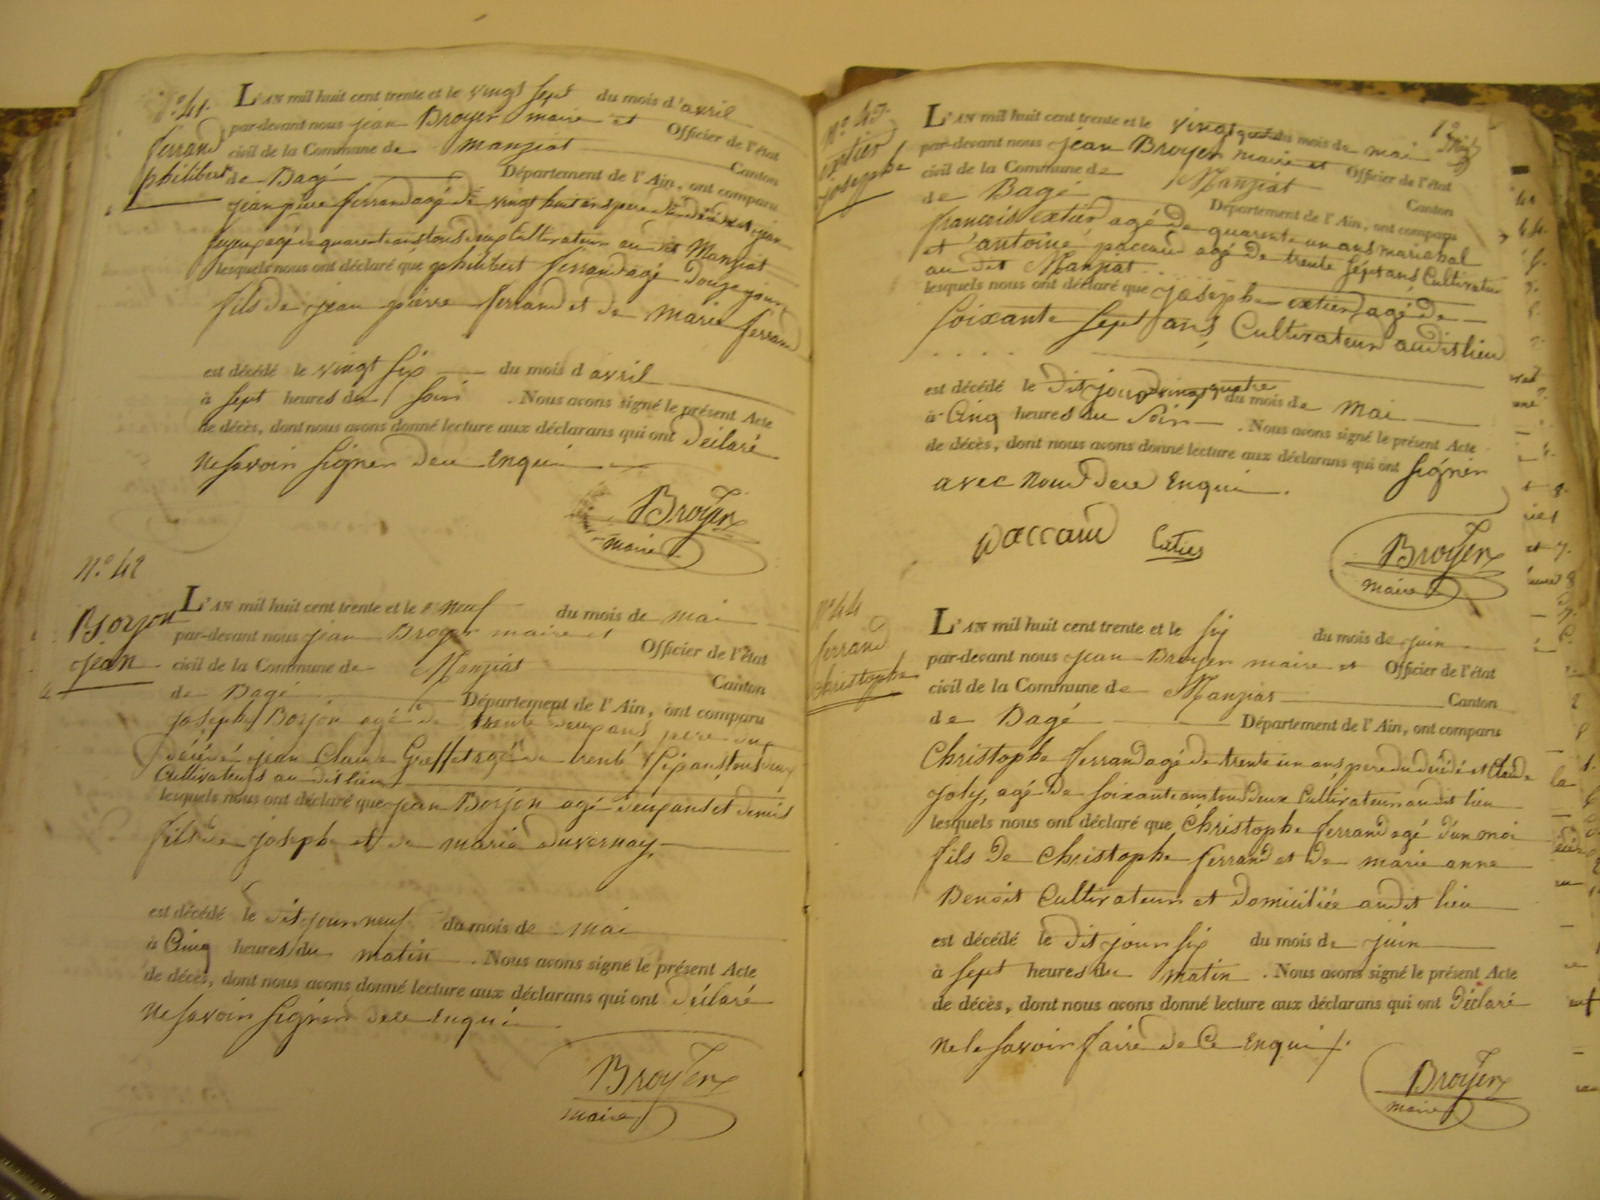 N.º 41.
ferrand
philibert
L'AN mil huit cent trente et le vingt sept du mois d'avril
par-devant nous jean Broyer maire et Officier de l'état
civil de la Commune de Manziat Canton
de Bagé Département de l'Ain, ont comparu
jean pierre ferrand agé de vingt huit ans pere du décédé et jean
agé de quarante ans tous deux Cultivateurs au dit Manziat
lesquels nous ont déclaré que philibert ferrand agé Douze jours
fils de jean pierre ferrand et de marie ferrand
est décédé le vingt six du mois d avril
à sept heures du soir . Nous avons signé le présent Acte
de décès, dont nous avons donné lecture aux déclarans qui ont déclaré
ne savoir signer dece Enqui
Broyer
maire
N.º 42
Borjon
jean
L'AN mil huit cent trente et le neuf du mois de mai
par-devant nous jean Broyer maire et Officier de l'état
civil de la Commune de Manziat Canton
de Bagé Département de l'Ain, ont comparu
joseph Borjon agé de trente deux ans pere du
décédé jean Claude Greffet agé de trente sép ans, tous deux
Cultivateurs au dit lieu
lesquels nous ont déclaré que jean Borjon agé deux ans et demis
fils de joseph et de marie duvernay
est décédé le dit jour neuf du mois de mai
à Cinq heures du matin . Nous avons signé le présent Acte
de décès, dont nous avons donné lecture aux déclarans qui ont déclaré
ne savoir signer dece Enqui
Broyer
maire
N.º 43.
extier
josephe
L'AN mil huit cent trente et le vingt quatre du mois de mai
par-devant nous jean Broyer maire et Officier de l'état
civil de la Commune de Manziat Canton
de Bagé Département de l'Ain, ont comparu
francois extier agé de quarante un ans marichal
et antoine paccaud agé de trente sépt ans Cultivateur
au dit Manziat
lesquels nous ont déclaré que josephe extier agé de
soixante sept ans Cultivateur audit lieu
est décédé le dit jour vingt quatre du mois de Mai
à Cinq heures du Soir . Nous avons signé le présent Acte
de décès, dont nous avons donné lecture aux déclarans qui ont signér
avec nous dece Enqui .
paccaud
Broyer
maire
N.º 44
ferrand
christophe
L'AN mil huit cent trente et le six du mois de juin
par-devant nous jean Broyer maire et Officier de l'état
civil de la Commune de Manziat Canton
de Bagé Département de l'Ain, ont comparu
Christophe ferrand agé de trente un ans pere du décédé et Claude
joly, agé de soixante ans tous deux Cultivateur audit lieu
lesquels nous ont déclaré que Christophe ferrand agé d'un moi
fils De christophe ferrand et De marie anne
Benoit Cultivateurs et domiciliée audit lieu
est décédé le dit jour six du mois de juin
à sept heures du matin . Nous avons signé le présent Acte
de décès, dont nous avons donné lecture aux déclarans qui ont Déclaré
ne le savoir faire de Ce Enqui
Broyer
maire